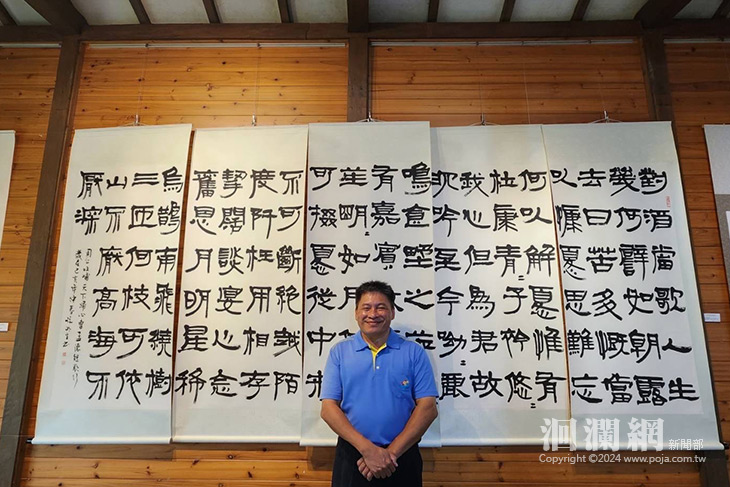 對酒當歌人生
幾何譬如朝露
去日苦多慨當
以慷憂思難忘
何以解憂惟有
杜康青〻子衿悠〻
我心但為君故
沉吟至今呦〻鹿
鳴食埜之苹
有嘉賓
笙明〻如月
可掇憂從中來
不可斷絕越陌
度阡枉用相存
契闊談宴心念
舊恩月明星稀
烏鵲南飛繞樹
三匝何枝可依
山不厭高海不
厭深
周公吐哺天下歸心
洄瀾網 新聞部
Copyright ©2024 www.poja.com.tw